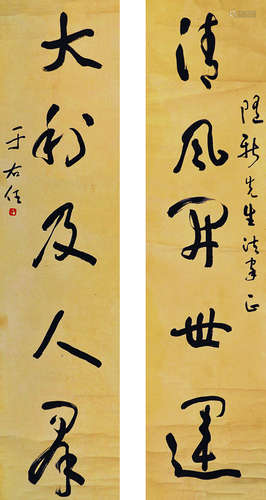 清风开世运
大利及人群
先生法家正
于右任